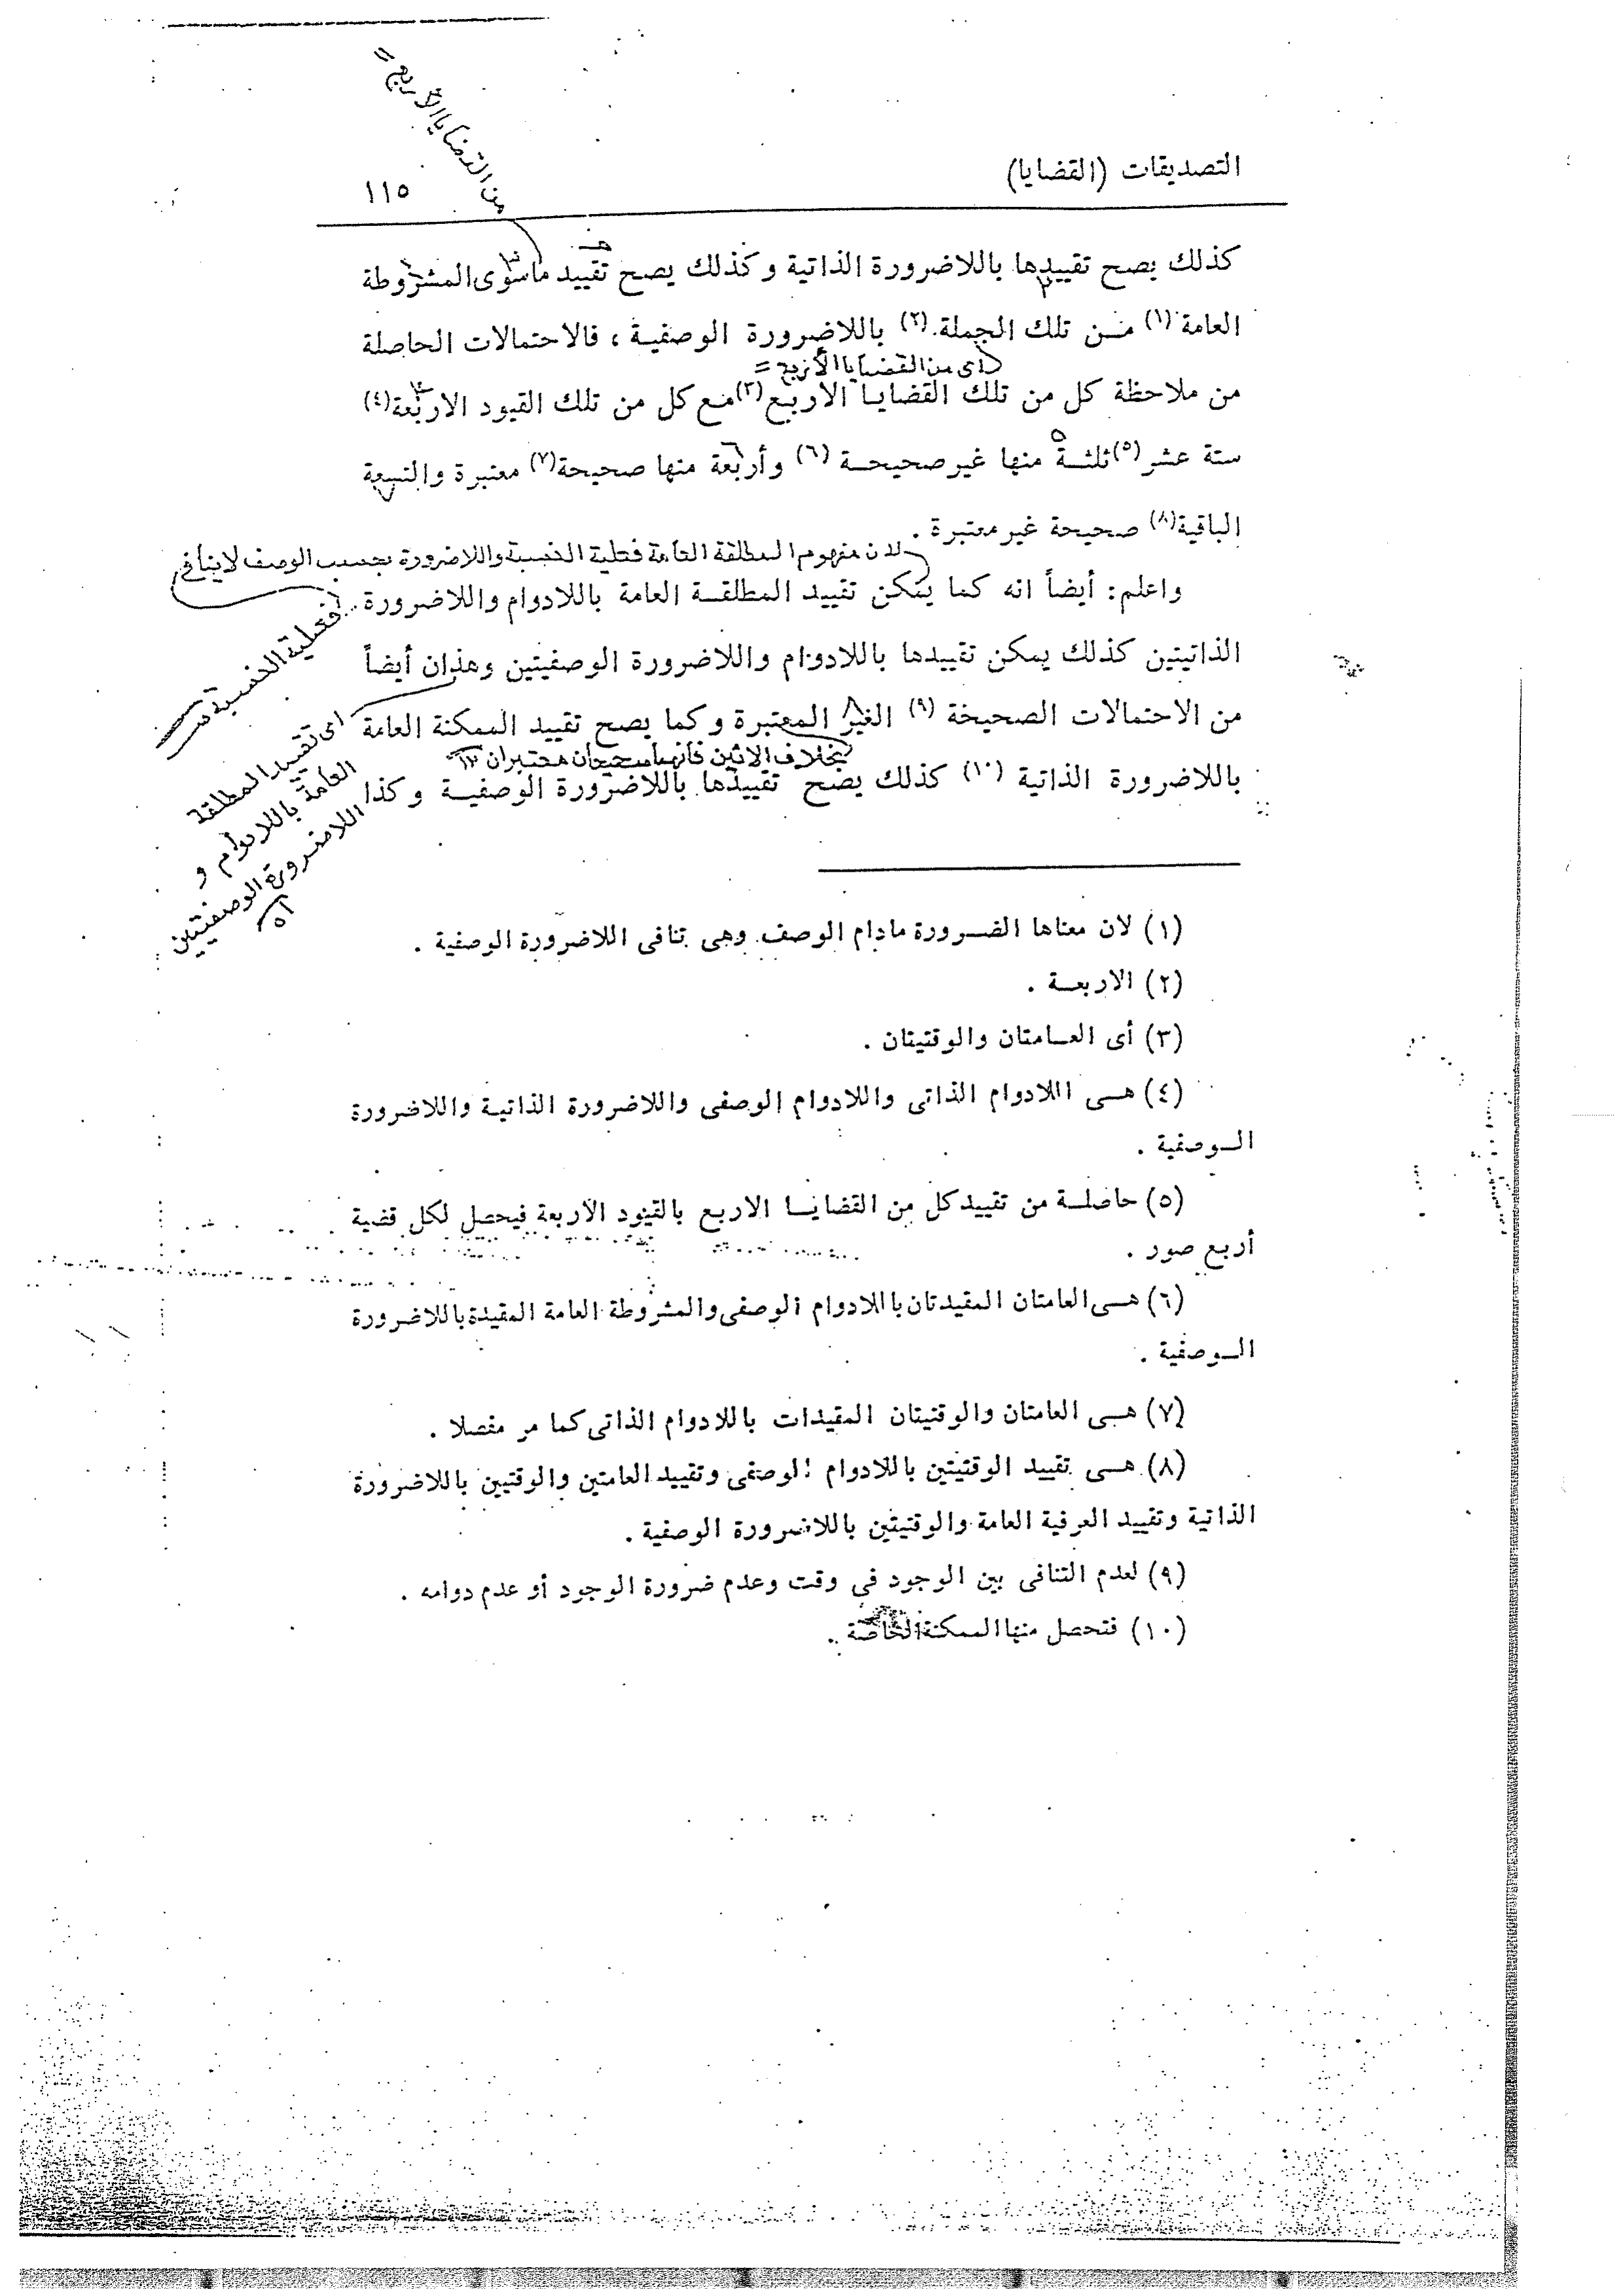 التصديقات (القضايا)
١١٥
من القضايا الأربع =
كذلك يصح تقييدها باللاضرورة الذاتية وكذلك يصح تقييد ماسوى المشروطة
العامة (١) مـن تلك الجملة (٢) باللاضرورة الوصفية ، فالاحتمالات الحاصلة
أى من القضايا الأربع =
من ملاحظة كل من تلك القضايا الاربع (٣) مع كل من تلك القيود الاربعة (٤)
ستة عشر (٥) ثلثـة منها غير صحيحـة (٦) وأربعة منها صحيحة (٧) معتبرة والتسعة
الباقية (٨) صحيحة غير معتبرة .
لان مفهوم المطلقة العامة فعلية النسبة واللاضرورة بحسب الوصف لاينافى
فعلية النسبة
واعلم: أيضاً انه كما يمكن تقييد المطلقـة العامة باللادوام واللاضرورة
الذاتيتين كذلك يمكن تقييدها باللادوام واللاضرورة الوصفيتين وهذان أيضاً
من الاحتمالات الصحيحة (٩) الغير المعتبرة وكما يصح تقييد الممكنة العامة
بخلاف الاثنين فانهما صحيحان معتبران
باللاضرورة الذاتية (١٠) كذلك يصح تقييدها باللاضرورة الوصفيـة وكذا
اى تقييد المطلقة
العامة باللادوام و
اللاضرورة الوصفيتين
(١) لان معناها الضـرورة مادام الوصف وهى تنافى اللاضرورة الوصفية .
(٢) الاربعـة .
(٣) أى العـامتان والوقتيتان .
(٤) هـى اللادوام الذاتى واللادوام الوصفى واللاضرورة الذاتية واللاضرورة
الـوصفية .
(٥) حاصلـة من تقييد كل من القضايـا الاربع بالقيود الأربعة فيحصل لكل قضية
أربع صور .
(٦) هـى العامتان المقيدتان باللادوام الوصفى والمشروطة العامة المقيدة باللاضرورة
الـوصفية .
(٧) هـى العامتان والوقتيتان المقيدات باللادوام الذاتى كما مر مفصلا .
(٨) هـى تقييد الوقتيتين باللادوام الوصفى وتقييد العامتين والوقتيين باللاضرورة
الذاتية وتقييد العرفية العامة والوقتيتين باللاضرورة الوصفية .
(٩) لعدم التنافى بين الوجود فى وقت وعدم ضرورة الوجود أو عدم دوامه .
(١٠) فتحصل منها الممكنة الخاصة .